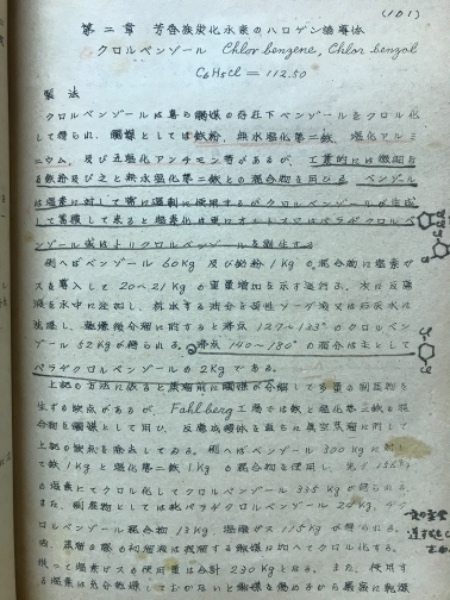 (101)
第二章 芳香族炭化水素のハロゲン誘導体
クロルベンゾール Chlor bengene, Chlor benzol
C6H5Cl = 112.50
製法
クロルベンゾールは専ら触媒の存在下ベンゾールをクロル化
して得られ、触媒としては鉄粉、無水塩化第二鉄、塩化アルミ
ニウム、及び五塩化アンチモン等があるが、工業的には微細な
る鉄粉及び之と無水塩化第二鉄との混合物を用ひる。ベンゾール
は塩素に対して常に過剰に使用するがクロルベンゾールが生成
して蓄積して来ると塩素化は更にオルトスはパラヂクロルベ
ンゾール或はトリクロルベンゾールを副生する
例へばベンゾール 60Kg 及び鉄粉 1Kg の混合物に塩素ガ
スを導入して 20~21Kg の重量増加を示す迄行る。次に反應
液を水中に注加し、析出する油分を苛性ソーダ液又は石灰水に
洗滌し、乾燥後分溜に附すると沸点 127~133° のクロルベン
ゾール 52Kg が得られる。沸点 140~180° の溜分は主として
パラヂクロルベンゾールの 2Kg である。
上記の方法に依ると蒸溜前に触媒が分解して多量の副産物を
生ずる欠点があるが、Fahlberg 工場では鉄と塩化第二鉄の混
合物を触媒として用ひ、反應成績体を直ちに真空蒸溜に附して
上記の欠点を除去してゐる。例へばベンゾール 300Kg に対し
て鉄 1Kg と塩化第二鉄 1Kg の混合物を使用し、
の塩素にてクロル化してクロルベンゾール 335Kg が得られる。
また、副産物としては純パラヂクロルベンゾール
ロルベンゾール混合物 13Kg、塩酸ガス 115Kg が得られる。
尚、蒸溜の際の初溜液は残溜する触媒に加へてクロル化する。
従って塩素ガスの使用量は合計 230Kg となる。また、使用す
る塩素は充分乾燥しておかないと触媒を傷めるから厳密に乾燥